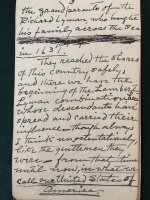 the grand parents of the
Richard Lyman, who brought
his family across the Sea
in 1631.
They reached the Shores
of this country safely,
and here we have the
beginning of the Lambert
Lyman combination
whose descendants have
spread and carried their
influence - though always
I think unostentatiously,
like the gentlemen they
were - from that time
until now, in what we
call our United States of
America.